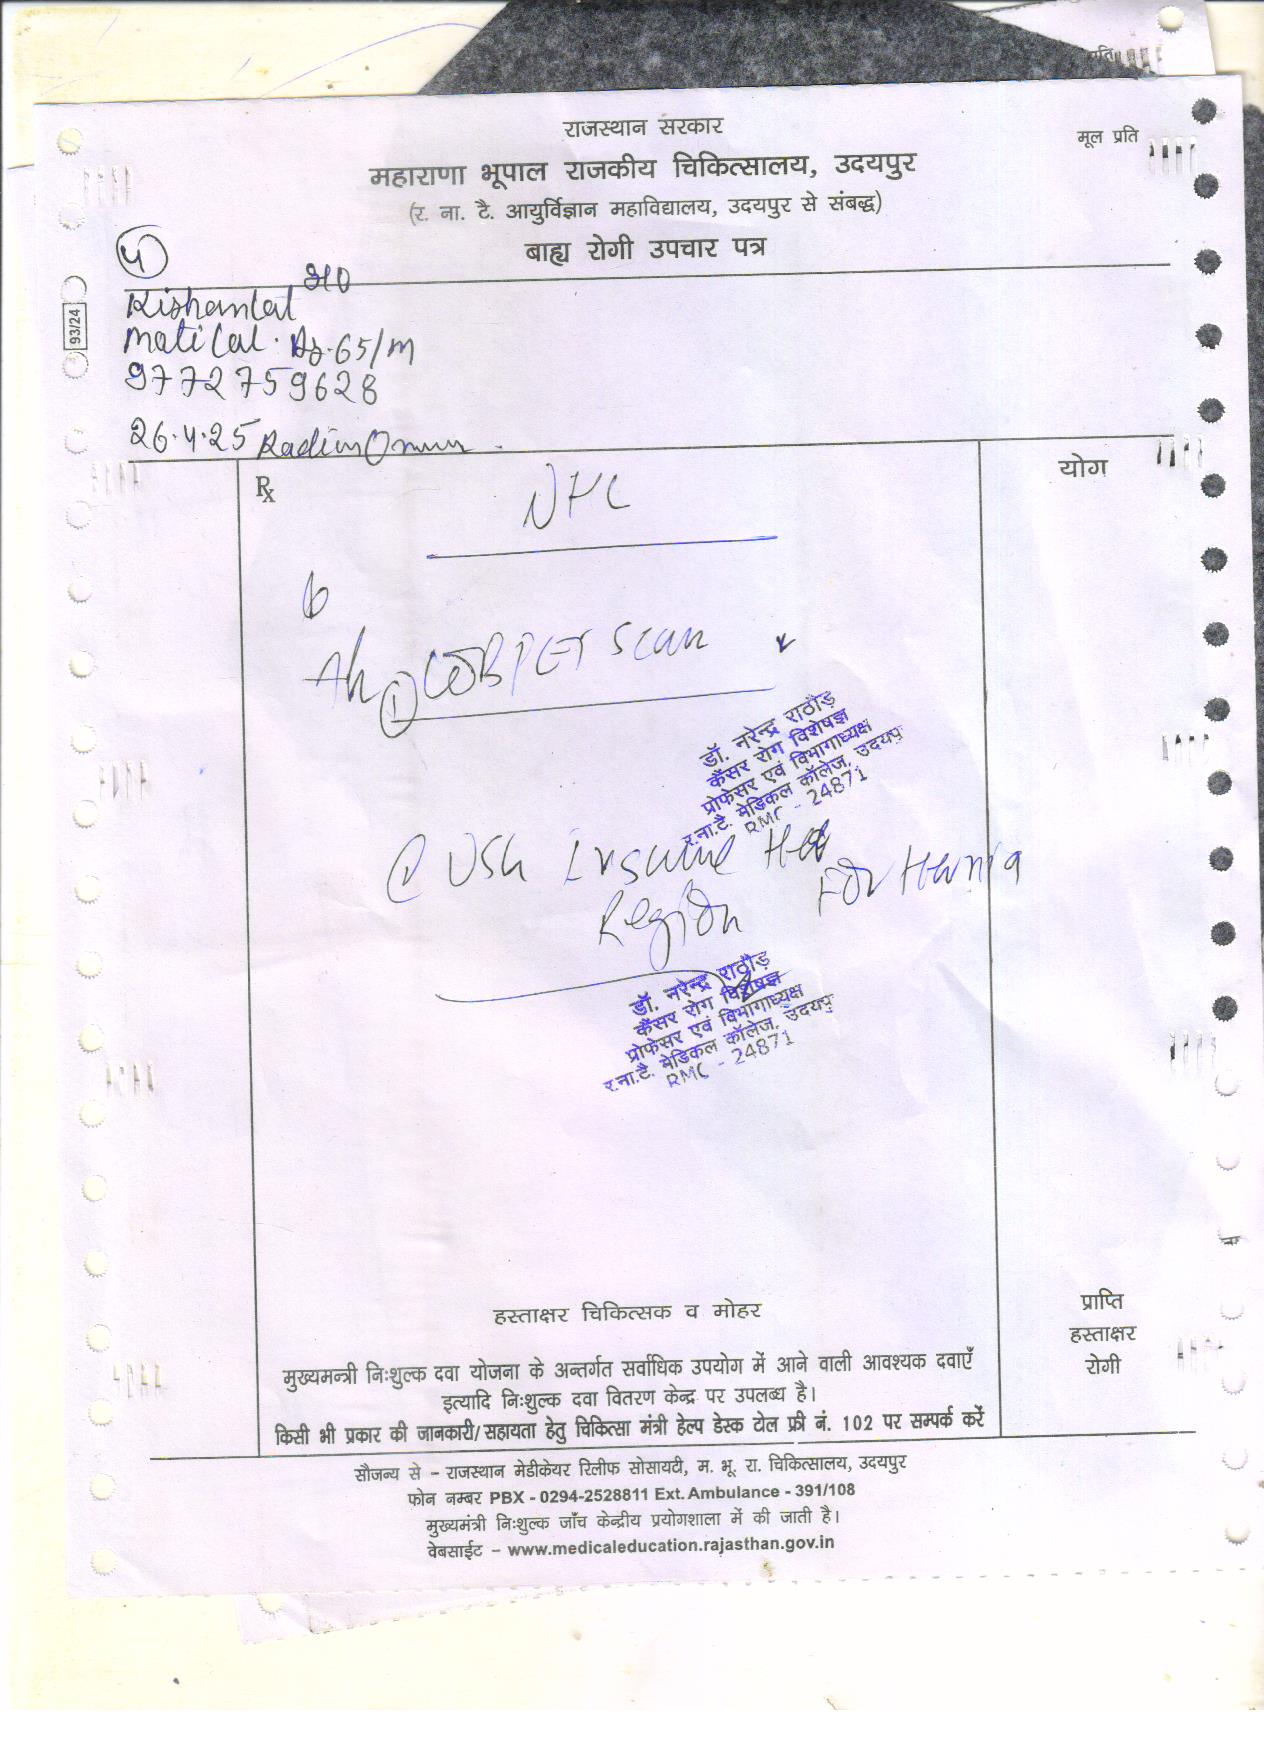 राजस्थान सरकार
मूल प्रति
महाराणा भूपाल राजकीय चिकित्सालय, उदयपुर
(र. ना. टै. आयुर्विज्ञान महाविद्यालय, उदयपुर से संबद्ध)
बाह्य रोगी उपचार पत्र
93/24
Kishanlal
Matilal. Ag. 65/M
9772759628
26.4.25
Rx
योग
PET Scan
डॉ. नरेन्द्र राठौड़
कैंसर रोग विशेषज्ञ
प्रोफेसर एवं विभागाध्यक्ष
र.ना.टै. मेडिकल कॉलेज, उदयपु
RMC - 24871
USG
Region For Hernia
डॉ. नरेन्द्र राठौड़
कैंसर रोग विशेषज्ञ
प्रोफेसर एवं विभागाध्यक्ष
र.ना.टै. मेडिकल कॉलेज, उदयपु
RMC - 24871
हस्ताक्षर चिकित्सक व मोहर
प्राप्ति
हस्ताक्षर
रोगी
मुख्यमन्त्री निःशुल्क दवा योजना के अन्तर्गत सर्वाधिक उपयोग में आने वाली आवश्यक दवाएँ
इत्यादि निःशुल्क दवा वितरण केन्द्र पर उपलब्ध है।
किसी भी प्रकार की जानकारी/सहायता हेतु चिकित्सा मंत्री हेल्प डेस्क टोल फ्री नं. 102 पर सम्पर्क करें
सौजन्य से – राजस्थान मेडीकेयर रिलीफ सोसायटी, म. भू. रा. चिकित्सालय, उदयपुर
फोन नम्बर PBX - 0294-2528811 Ext. Ambulance - 391/108
मुख्यमंत्री निःशुल्क जाँच केन्द्रीय प्रयोगशाला में की जाती है।
वेबसाईट – www.medicaleducation.rajasthan.gov.in